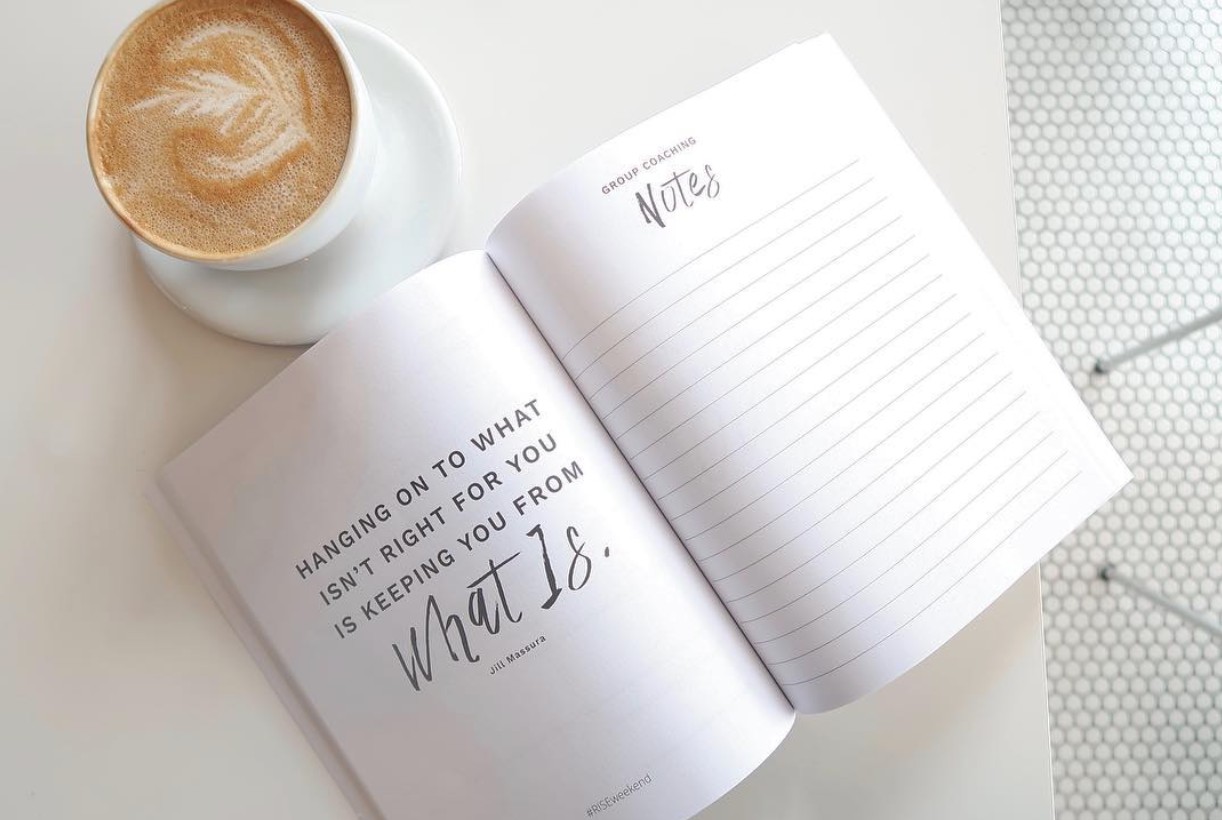 HANGING ON TO WHAT
ISN'T RIGHT FOR YOU
IS KEEPING YOU FROM
What Is.
Jill Massura
#RISEweekend
GROUP COACHING
Notes